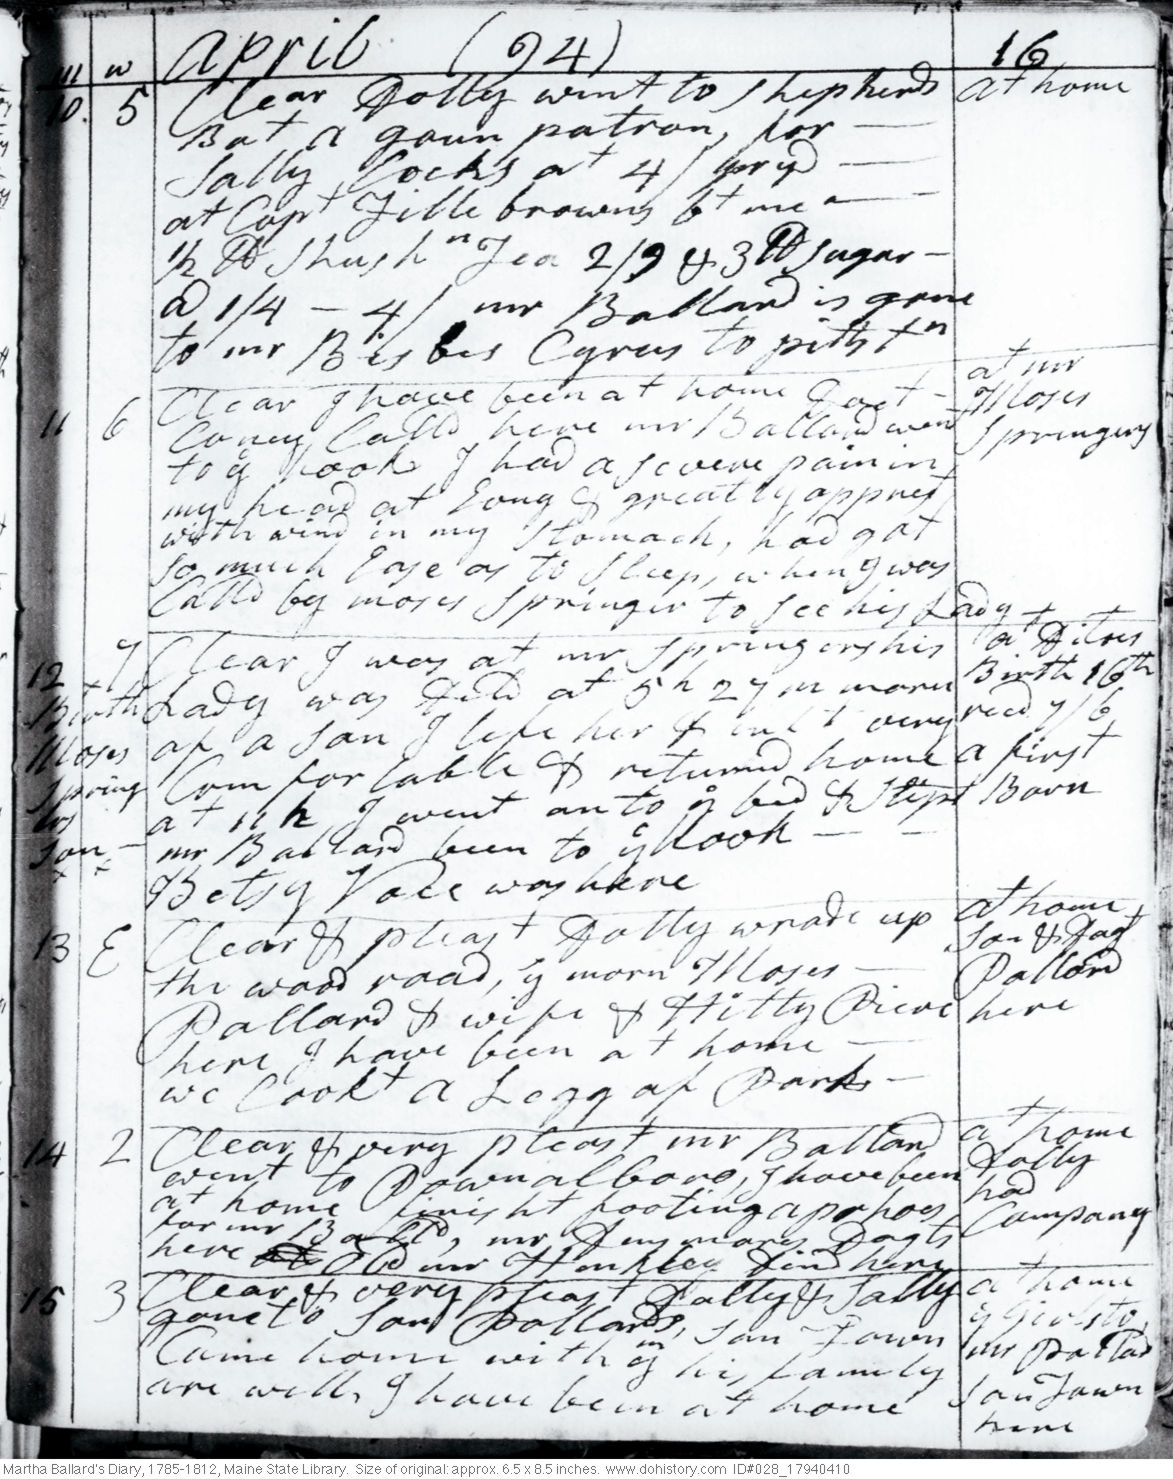 m w april (94) 16
10. 5 Clear Dolly went to Shepherds at home
Bat a goun patron, for
Sally, Cocks at 4/ pr yd
at Capt Fillebrowns bt me
1/2 lb Shush n Tea 2/9 & 3 lb Sugar
@ 1/4 - 4/ mr Ballard is gone
to mr Bisbes Cyrus to pitst n
11 6 Clear I have been at home Doct at mr
Coney Calld here mr Ballard went Moses
to ye hook I had a severe pain in Springers
my head at Evng & greatly opprest
with wind in my Stomach, had got
so much Ease as to Sleep, when I was
Calld by moses Springer to see his Lady
12 7 Clear I was at mr Springers his at Ditoes
Birth Lady was Deld at 5 h 27 m morn Birth 16th
Moses of a Son I left her & inft very recd 7/6
Spring Comfortable & returnd home a first
ers at 11 h I went on to ye bed & Slept Born
Son mr Ballard been to ye hook
x x Betsy Vose was here
13 E Clear & pleast Dolly wrode up at home
the wood road, ye morn Moses Son & Dagt
Pollard & wife & Hitty Pierc Pollard
here I have been at home here
we Cookt a Legg of Pork
14 2 Clear & very pleast mr Ballard at home
went to Pownalboro, I have been Dolly
at home finisht footing a pr hoes had
for mr Balld, mr Densmores Dagts Company
here Old mr Hinkley Dind here
15 3 Clear & very pleast Dolly & Sally at home
gone to Son Pollards, Son Town ye Girls to
Came home with ym his family mr Pollard
are well, I have been at home Son Town
here
Martha Ballard's Diary, 1785-1812, Maine State Library. Size of original: approx. 6.5 x 8.5 inches. www.dohistory.com ID#028_17940410